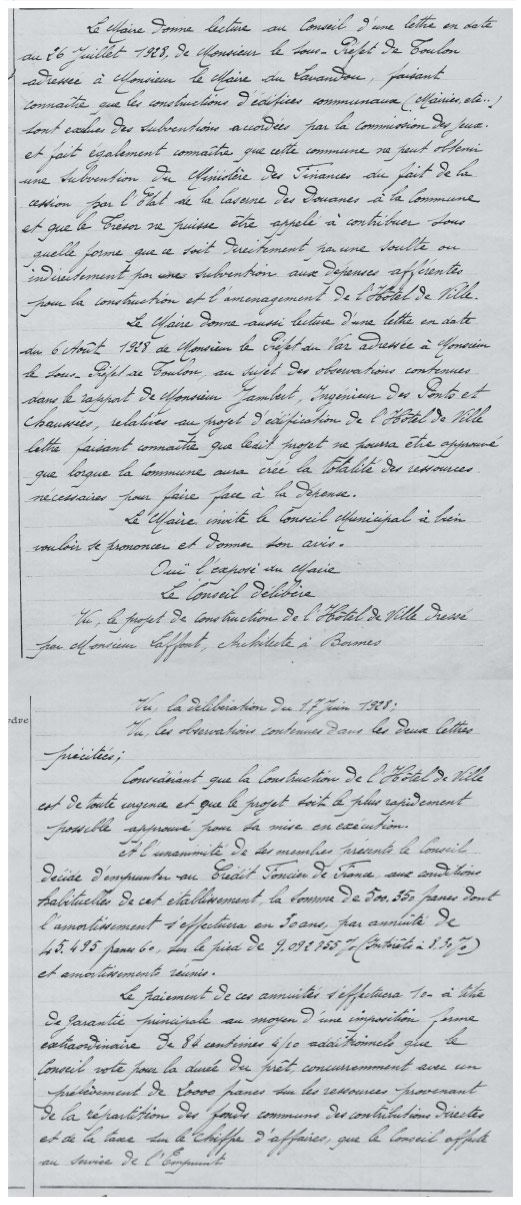 Le Maire donne lecture au Conseil d'une lettre en date
au 26 Juillet 1928, de Monsieur le Sous-Préfet de Toulon
adressée à Monsieur le Maire du Lavandou, faisant
connaître que les constructions d'édifices communaux (Mairies, etc..)
sont exclues des subventions accordées par la commission des Jeux.
et fait également connaître que cette commune ne peut obtenir
une subvention du Ministère des Finances du fait de la
cession par l'Etat de la caserne des Douanes à la Commune
et que le Trésor ne puisse être appelé à contribuer sous
quelle forme que ce soit directement par une soulte ou
indirectement par une subvention aux dépenses afférentes
pour la construction et l'aménagement de l'Hôtel de Ville.
Le Maire donne aussi lecture d'une lettre en date
du 6 Août 1928 de Monsieur le Préfet du Var adressée à Monsieur
le Sous-Préfet de Toulon, au sujet des observations contenues
dans le rapport de Monsieur Jambert, Ingénieur des Ponts et
Chaussées, relatives au projet d'édification de l'Hôtel de Ville
lettre faisant connaître que ledit projet ne pourra être approuvé
que lorque la Commune aura créé la totalité des ressources
nécessaires pour faire face à la dépense.
Le Maire invite le Conseil Municipal à bien
vouloir se prononcer et donner son avis.
Ouï l'exposé du Maire
Le Conseil délibère
Vu, le projet de construction de l'Hôtel de Ville dressé
par Monsieur Laffont, Architecte à Bormes
Vu, la délibération du 17 Juin 1928;
dre
Vu, les observations contenues dans les deux lettres
précitées;
Considérant que la Construction de l'Hôtel de Ville
est de toute urgence et que le projet soit le plus rapidement
possible approuvé pour sa mise en exécution.
A l'unanimité de ses membres présents le Conseil
décide d'emprunter au Crédit Foncier de France, aux conditions
habituelles de cet établissement, la somme de 500.350 francs dont
l'amortissement s'effectuera en 30 ans, par annuité de
45.495 francs 60, sur le pied de 9.092755 % (Intérêts à 8.30 %)
et amortissements réunis.
Le paiement de ces annuités s'effectuera 1°- à titre
de garantie principale au moyen d'une imposition ferme
extraordinaire de 84 centimes 4/10 additionnels que le
Conseil vote pour la durée du prêt, concurremment avec un
prélèvement de 20000 francs sur les ressources provenant
de la répartition des fonds communs des contributions directes
et de la taxe sur le chiffe d'affaires, que le Conseil affecte
au service de l'Emprunt